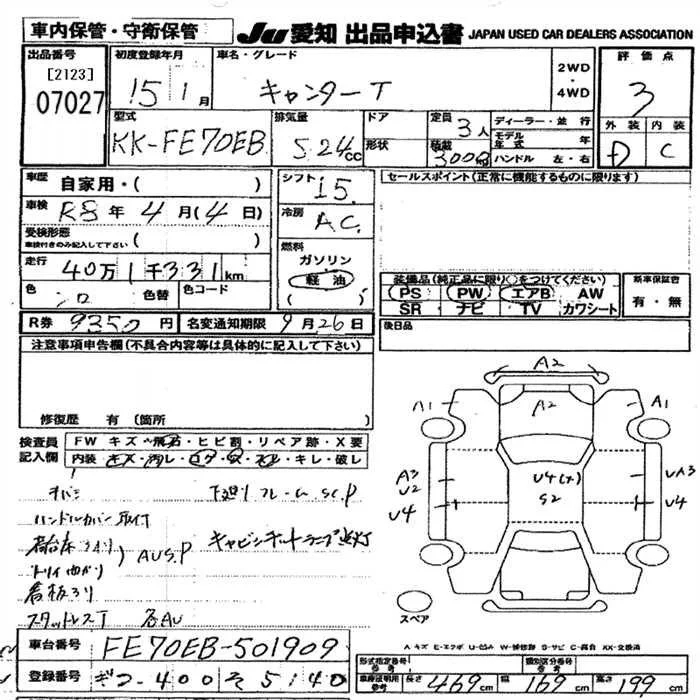 車内保管・守衛保管
JU 愛知 出品申込書 JAPAN USED CAR DEALERS ASSOCIATION
出品番号
[2123]
07027
初度登録年月
15 1月
車名・グレード
キャンターT
2WD
4WD
評価点
3
型式
KK-FE70EB
排気量
5.24cc
ドア
形状
定員 3人
積載 3000kg
ディーラー・並行
モデル年式 年
ハンドル 左・右
外装 内装
D C
車歴 自家用・( )
シフト I5
セールスポイント(正常に機能するものに限ります)
車検 R8年4月(4日)
冷房 A.C.
受検形態
車検付きのみ記入して下さい ( )
燃料
ガソリン
軽油
( )
走行 40万1千331km
色 シロ 色替 色コード
装備品(純正品に限り○をつけてください)
PS PW エアB AW
SR ナビ TV カワシート
新車保証書
有・無
R券 9350円 名変通知期限 9月26日
後日品
注意事項申告欄(不具合内容等は具体的に記入して下さい)
修復歴 有(箇所 )
検査員記入欄
FW キズ・飛石・ヒビ割・リペア跡・X要
内装 キズ・汚レ・コゲ・穴・スレ・キレ・破レ
下廻りフレームSC.P
ハンドルカバー取付
キャビンチルトランプ点灯
荷台床ヘリ) AUS.P
看板ヘリ
スタッドレスT 各AU
A2
A1 A2 A1
A3 U2 U4(メ) S2 UA3
U4 U4
スペア
A キズ E-エクボ U-凹み W-補修跡 S-サビ C-腐食 XX-交換済
車台番号 FE70EB-501909
型式指定番号 参考
類別区分番号 参考
車庫証明用参考 長さ469cm 幅169cm 高さ199cm